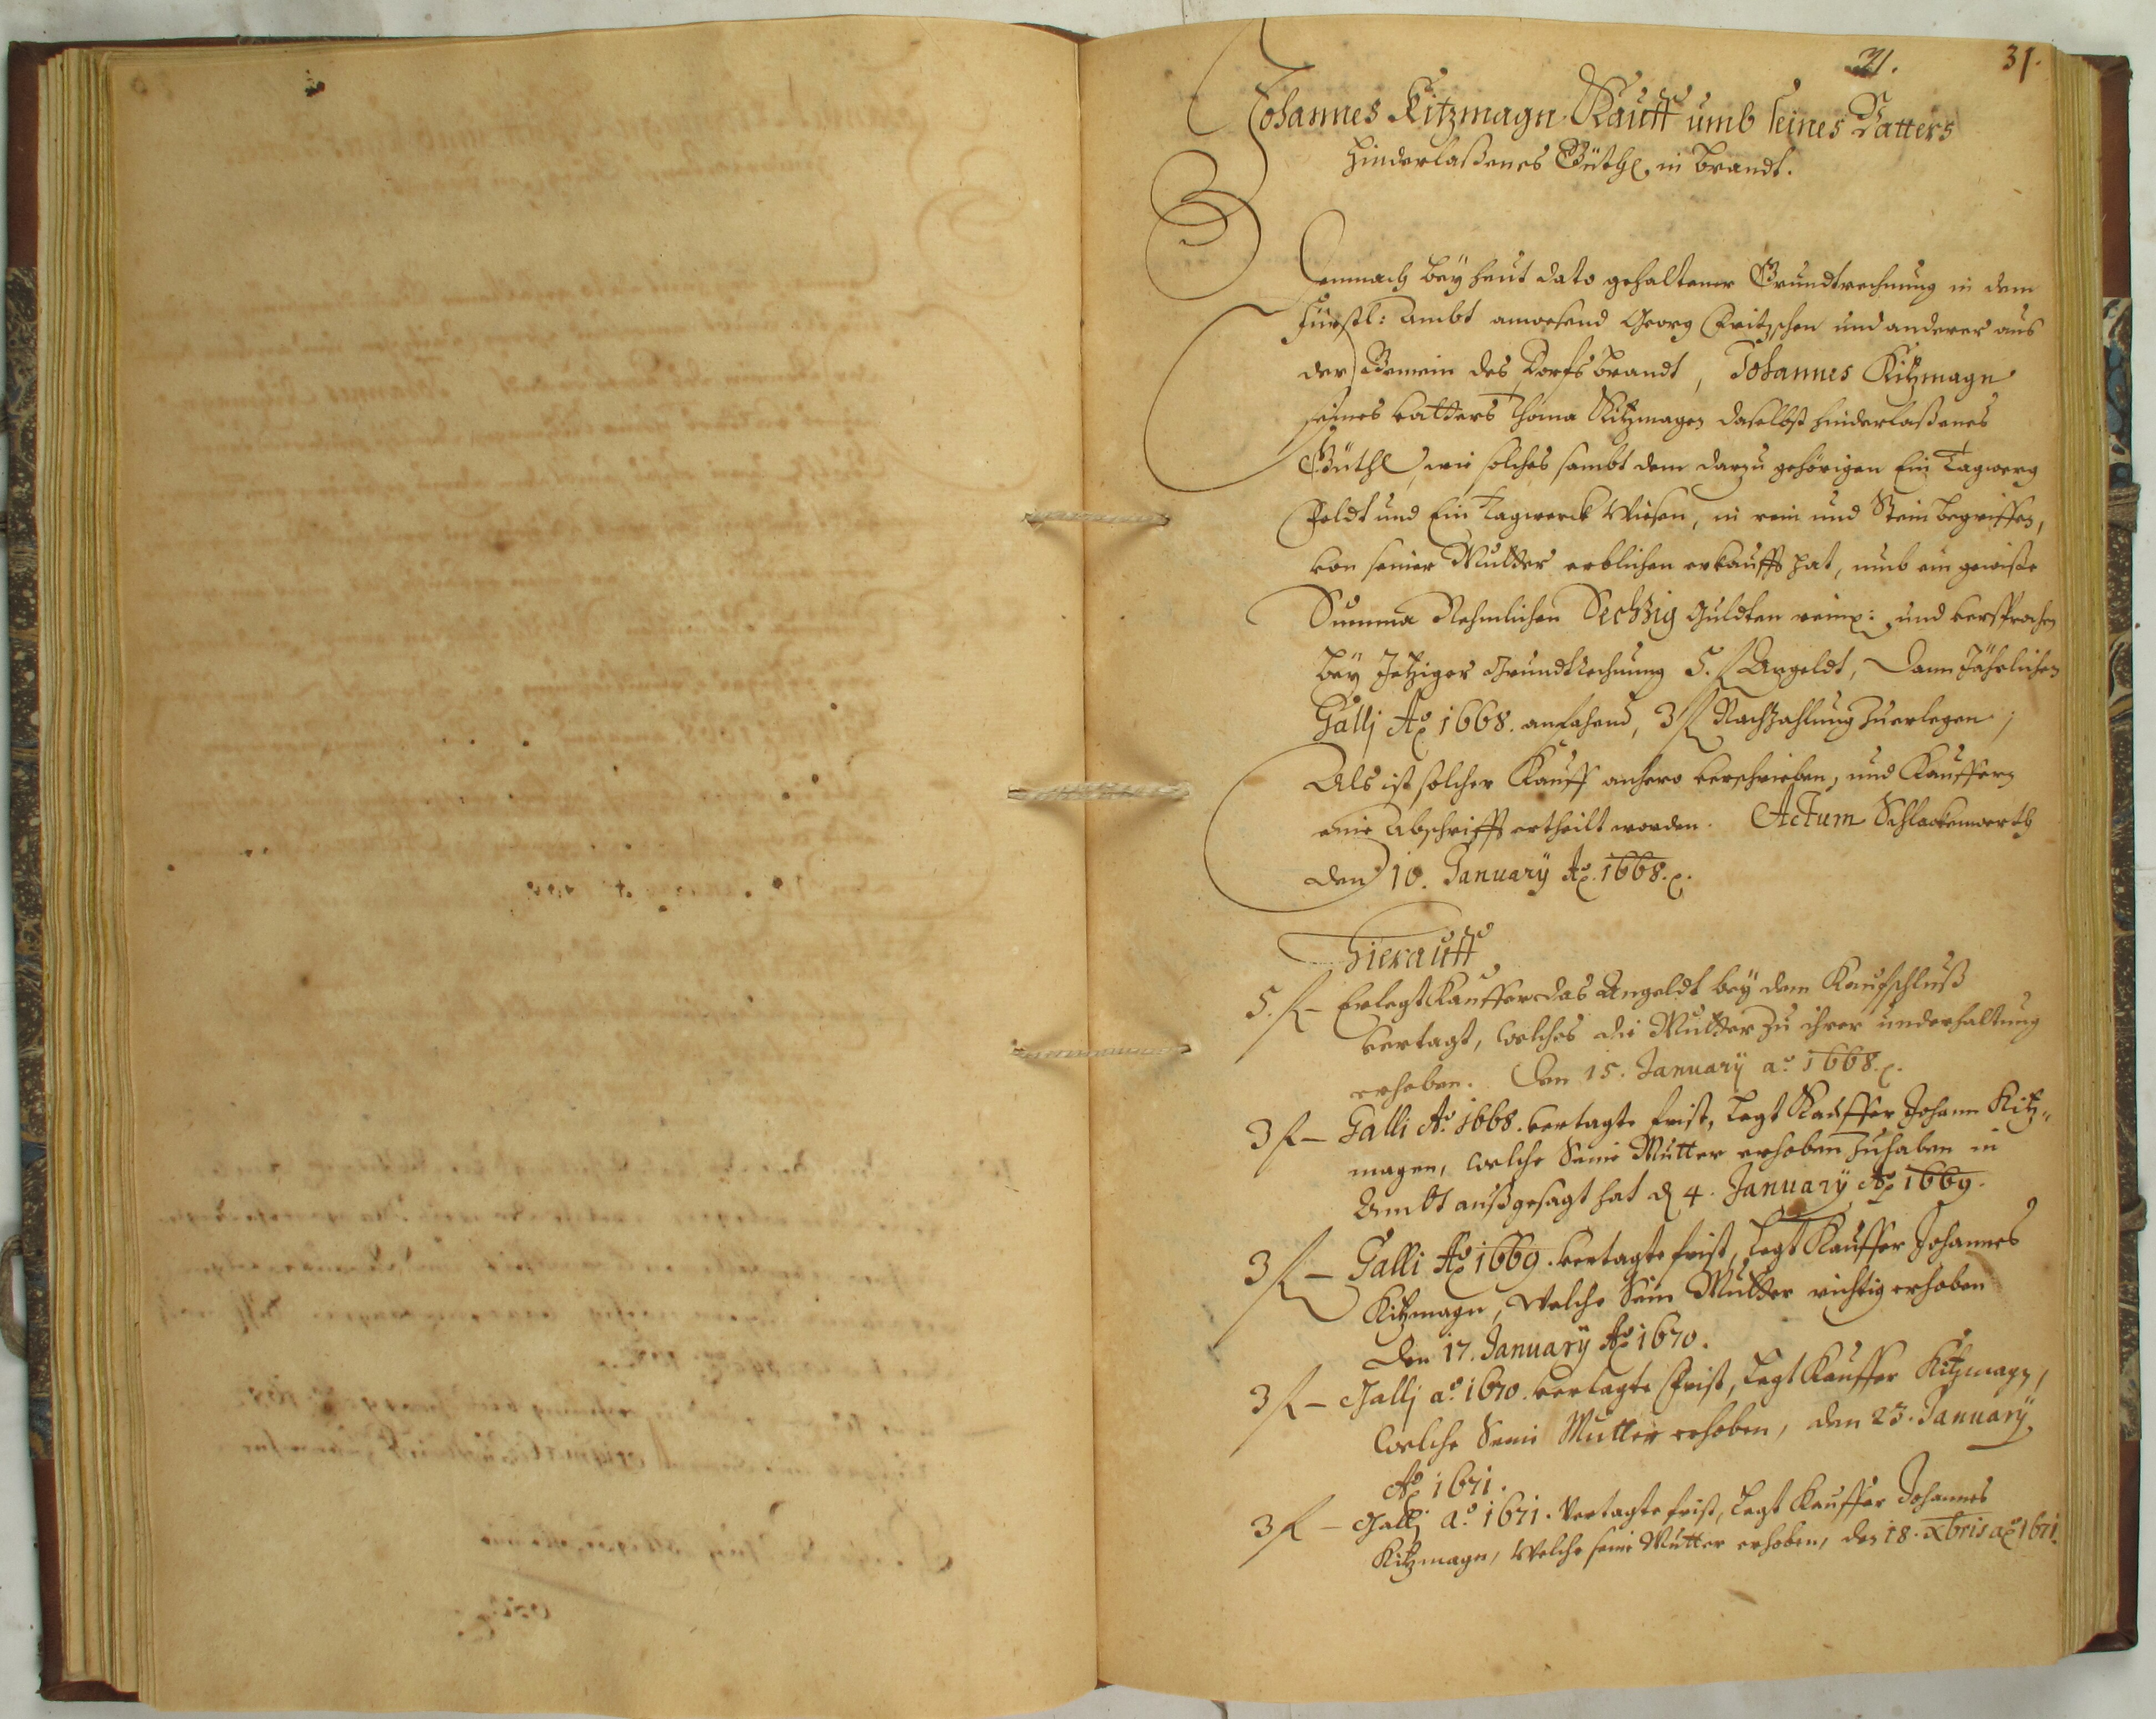 21. 31.
Johannes Kitzmagn Kauff umb seines Vatters
hinderlaßenes Güthl, in Brandt.
Demnach bey heut dato gehaltener Grundtrechnung in dem
Fürstl: Ambt anwesend Georg Fritzschen und anderer aus
der Gemein des Dorfs Brandt, Johannes Kitzmagn
seines Vatters Thoma Kitzmagen daselbst hinderlaßenes
Güthl, wie solches sambt dem darzu gehörigen Ein Tagwerg
Feldt und Ein Tagwerck Wiesen, in rein und Stein begriffen,
von seiner Mutter erblichen erkaufft hat, umb ein gewiße
Summa Nehmlichen Sechzig Guldten reinß: und versprochen
bey Jetziger Grundtrechnung 5. f Angeldt, Dann Jährlichen
Galli Ao 1668. anfahend, 3 f Nachzahlung zuerlegen;
Als ist solcher Kauff anhero verschrieben, und Kauffern
eine Abschrifft ertheilt worden. Actum Schlackenwerth
den 10. January Ao. 1668.
Hierauff
5. f – Erlegt Kauffer das Angeldt bey dem Kaufschluß
vertagt, welches die Mutter zu ihrer underhaltung
erhoben. Den 15. January ao 1668.
3 f – Galli Ao. 1668. vertagte frist, legt Kauffer Johann Kitz-
magen, welche Seine Mutter erhoben zuhaben in
Ambt außgesagt hat d 4. January Ao 1669.
3 f – Galli Ao 1669. vertagte frist, legt Kauffer Johannes
Kitzmagn, welche Sein Mutter richtig erhoben
den 17. January Ao 1670.
3 f – Galli ao. 1670. vertagte Frist, legt Kauffer Kitzmagn,
welche Seine Mutter erhoben, den 23. January
Ao 1671.
3 f – Galli ao. 1671. Vertagte frist, legt Kauffer Johannes
Kitzmagn, welche seine Mutter erhoben, den 18. Xbris ao 1671.